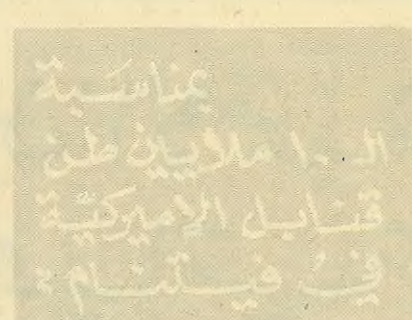 بمناسبة
الـ ١٠ ملايين طن
قنابل الاميركيّة
في فيتنام :